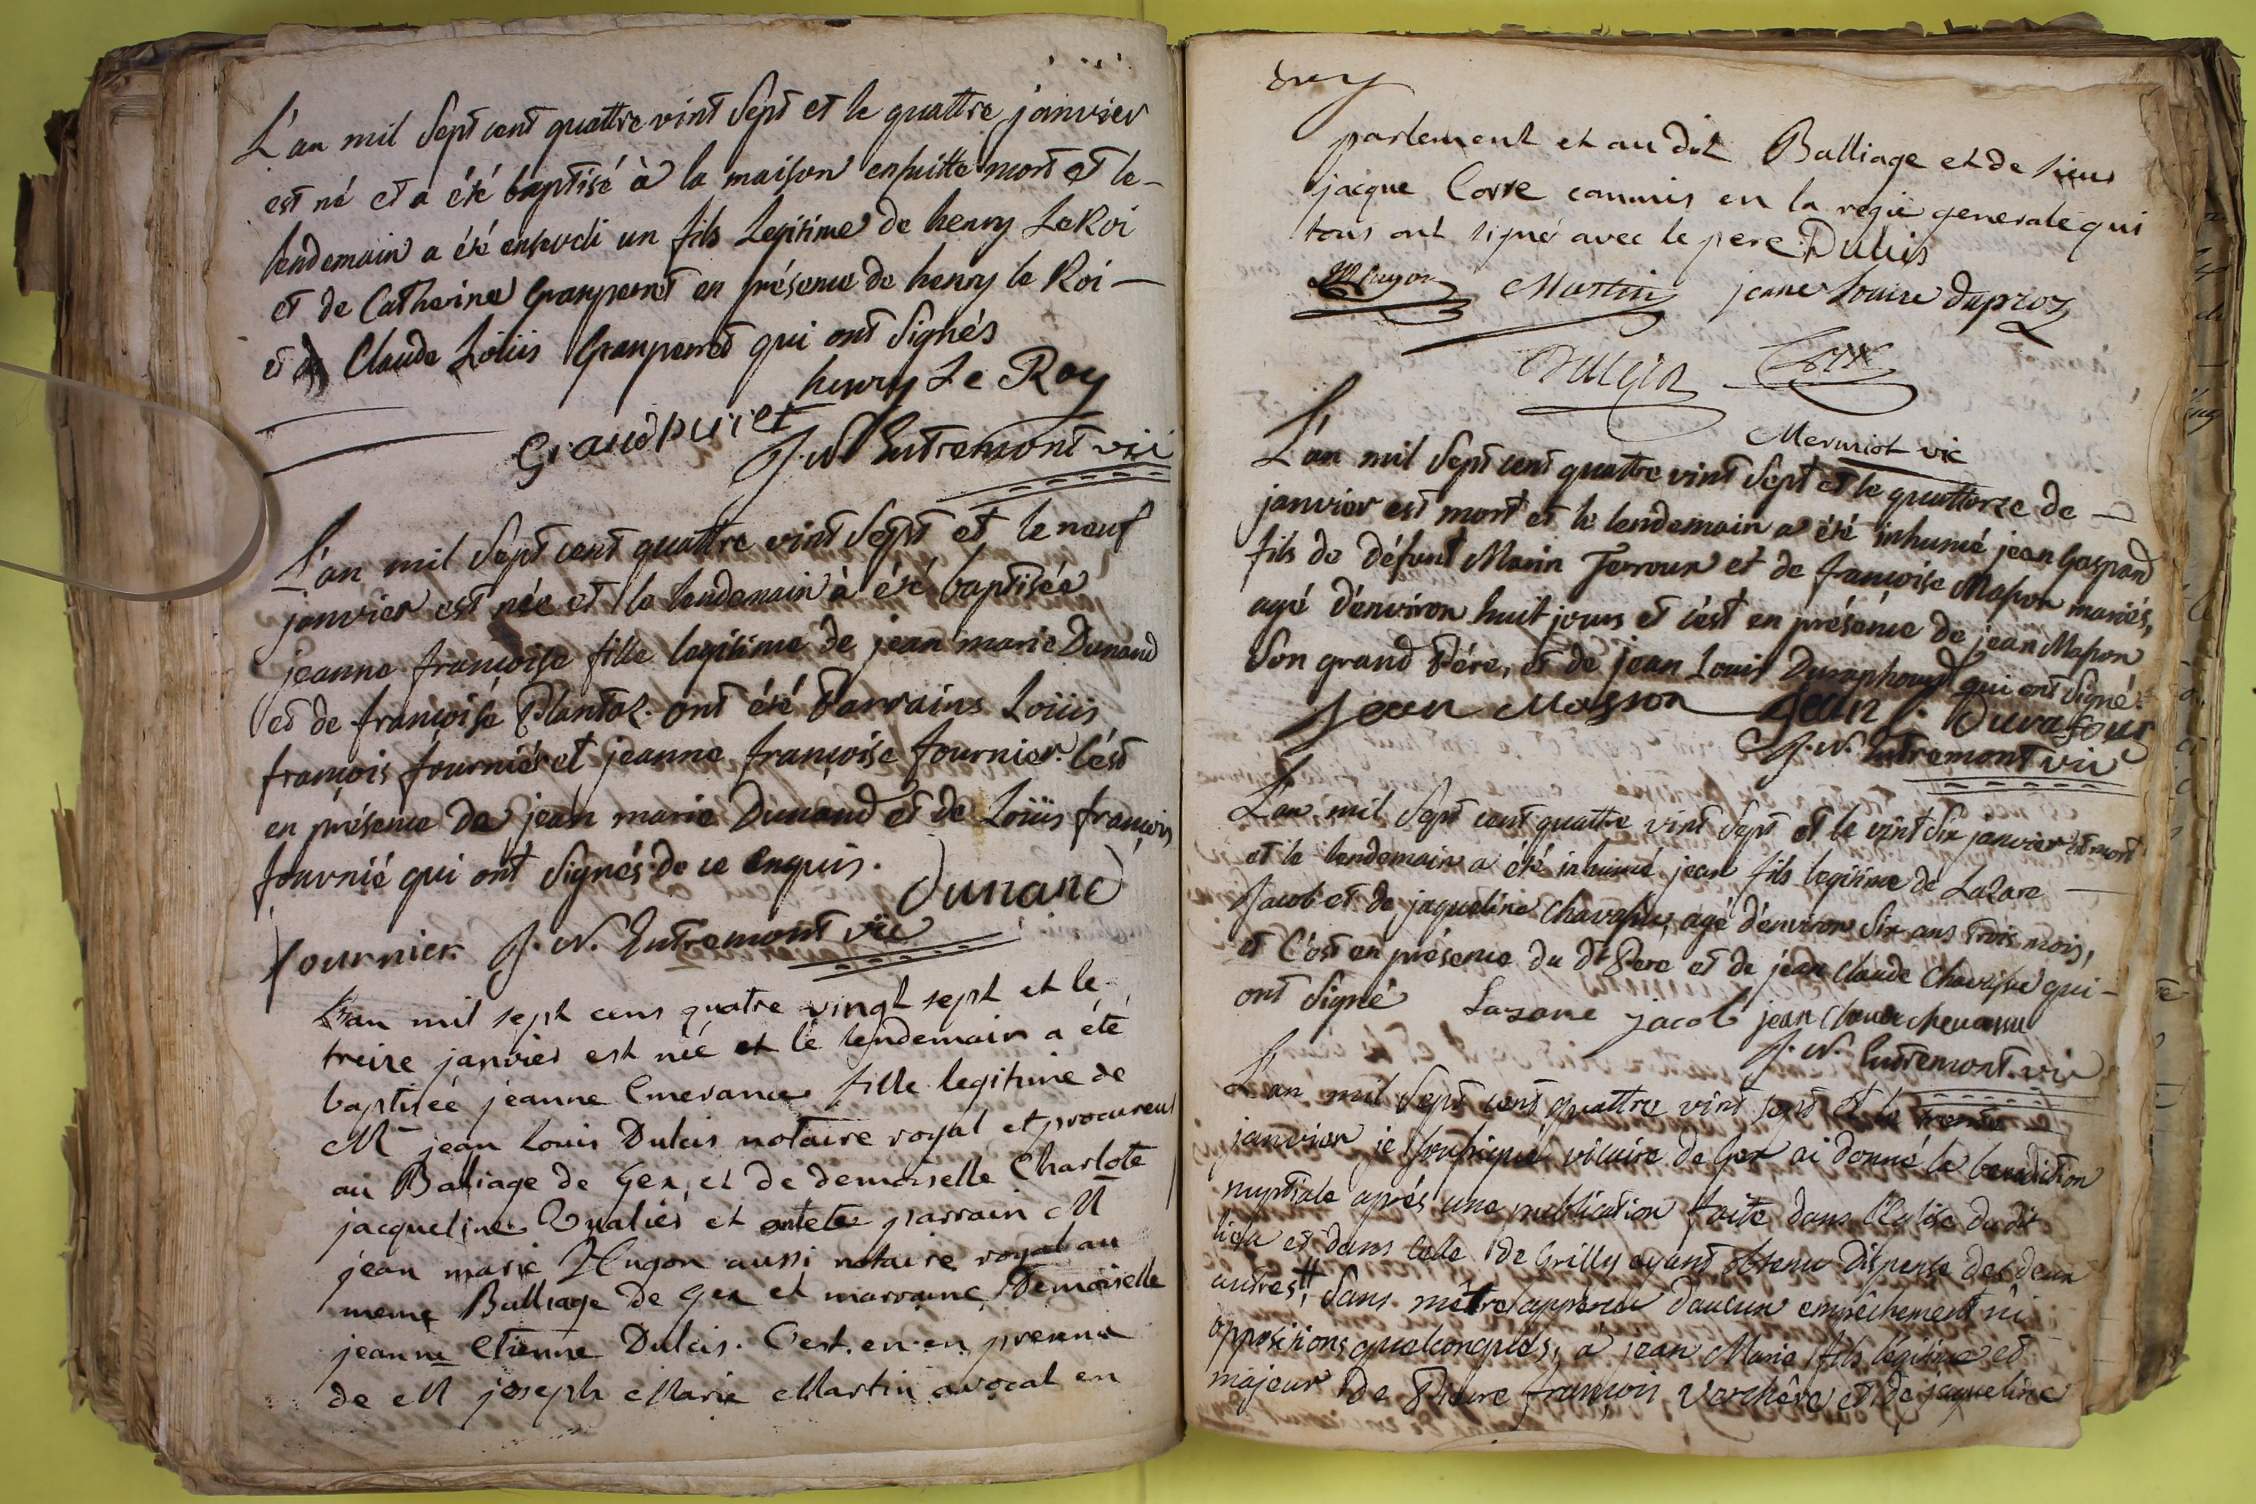 L'an mil Sept cent quattre vint Sept et le quattre janvier
est né et a été baptisé à la maison ensuitte mort et le
lendemain a été enseveli un fils Legitime de henry LeRoi
et de Catherine Granperret en présence de henry le Roi
et de Claude Loüis Granperret qui ont Signés
henry Le Roy
J. N. Entremont vic
L'an mil Sept cent quattre vint Sept et le neuf
janvier est née et le lendemain à été baptisée
jeanne françoise fille legitime de jean marie Dunand
et de françoise Plantaz. ont été Parrains Loüis
françois fournier et jeanne françoise fournier. C'est
en présence de jean marie Dunand et de Loüis françois
fournié qui ont Signés de ce enquis.
Dunand
fournier. J. N. Entremont vic
L'an mil sept cens quatre vingt sept et le
treize janvier est née et le lendemain a été
baptisée jeanne Emerance fille legitime de
Mr jean Louis Dulcis notaire royal et procureur
au Balliage de Gex, et de demoiselle Charlote
jacqueline et parrain M
jean marie Hugon aussi notaire royal au
meme Balliage de Gex et marraine Demoiselle
jeanne Etienne Dulcis. C'est en en presence
de M joseph Marie Martin avocat en
parlement et au dit Balliage et de sieur
jacque commis en la regie generale qui
tous ont signé avec le pere Dulcis
Hugon Martin jeane Louise duproz
Dulcis
Mermiot vic
L'an mil Sept cent quattre vint Sept et le quattorze de
janvier est mort et le lendemain a été inhumé jean Gaspard
fils de défunt Marin Terroux et de françoise Masson mariés,
agé d'environ huit jours et c'est en présence de jean Masson
Son grand Pére, et de jean Louis qui ont Signé.
Jean Masson Jean
J. N. Entremont vic
L'an mil Sept cent quattre vint Sept et le vint Six janvier est mort
et le lendemain a été inhumé jean fils legitime de Lazare
Jacob et de jaqueline Chavassu, agé d'environ Six ans trois mois,
et C'est en présence du dt Pere et de jean claude Chavassu qui
ont Signé Lazare jacob jean claude chevassu
J. N. Entremont vic
L'an mil Sept cent quattre vint sept et le trente
janvier je soussigné vicaire de Gex ai donné la benediction
nuptiale aprés une publication faite dans l'Eglise du dit
lieu et dans celle de Grilly ayant obtenu dispense des deux
autres, Sans d'aucun empêchement ni
oppositions quelconques, à jean Marie fils légitime et
majeur de Pierre françois Verchère et de jaqueline